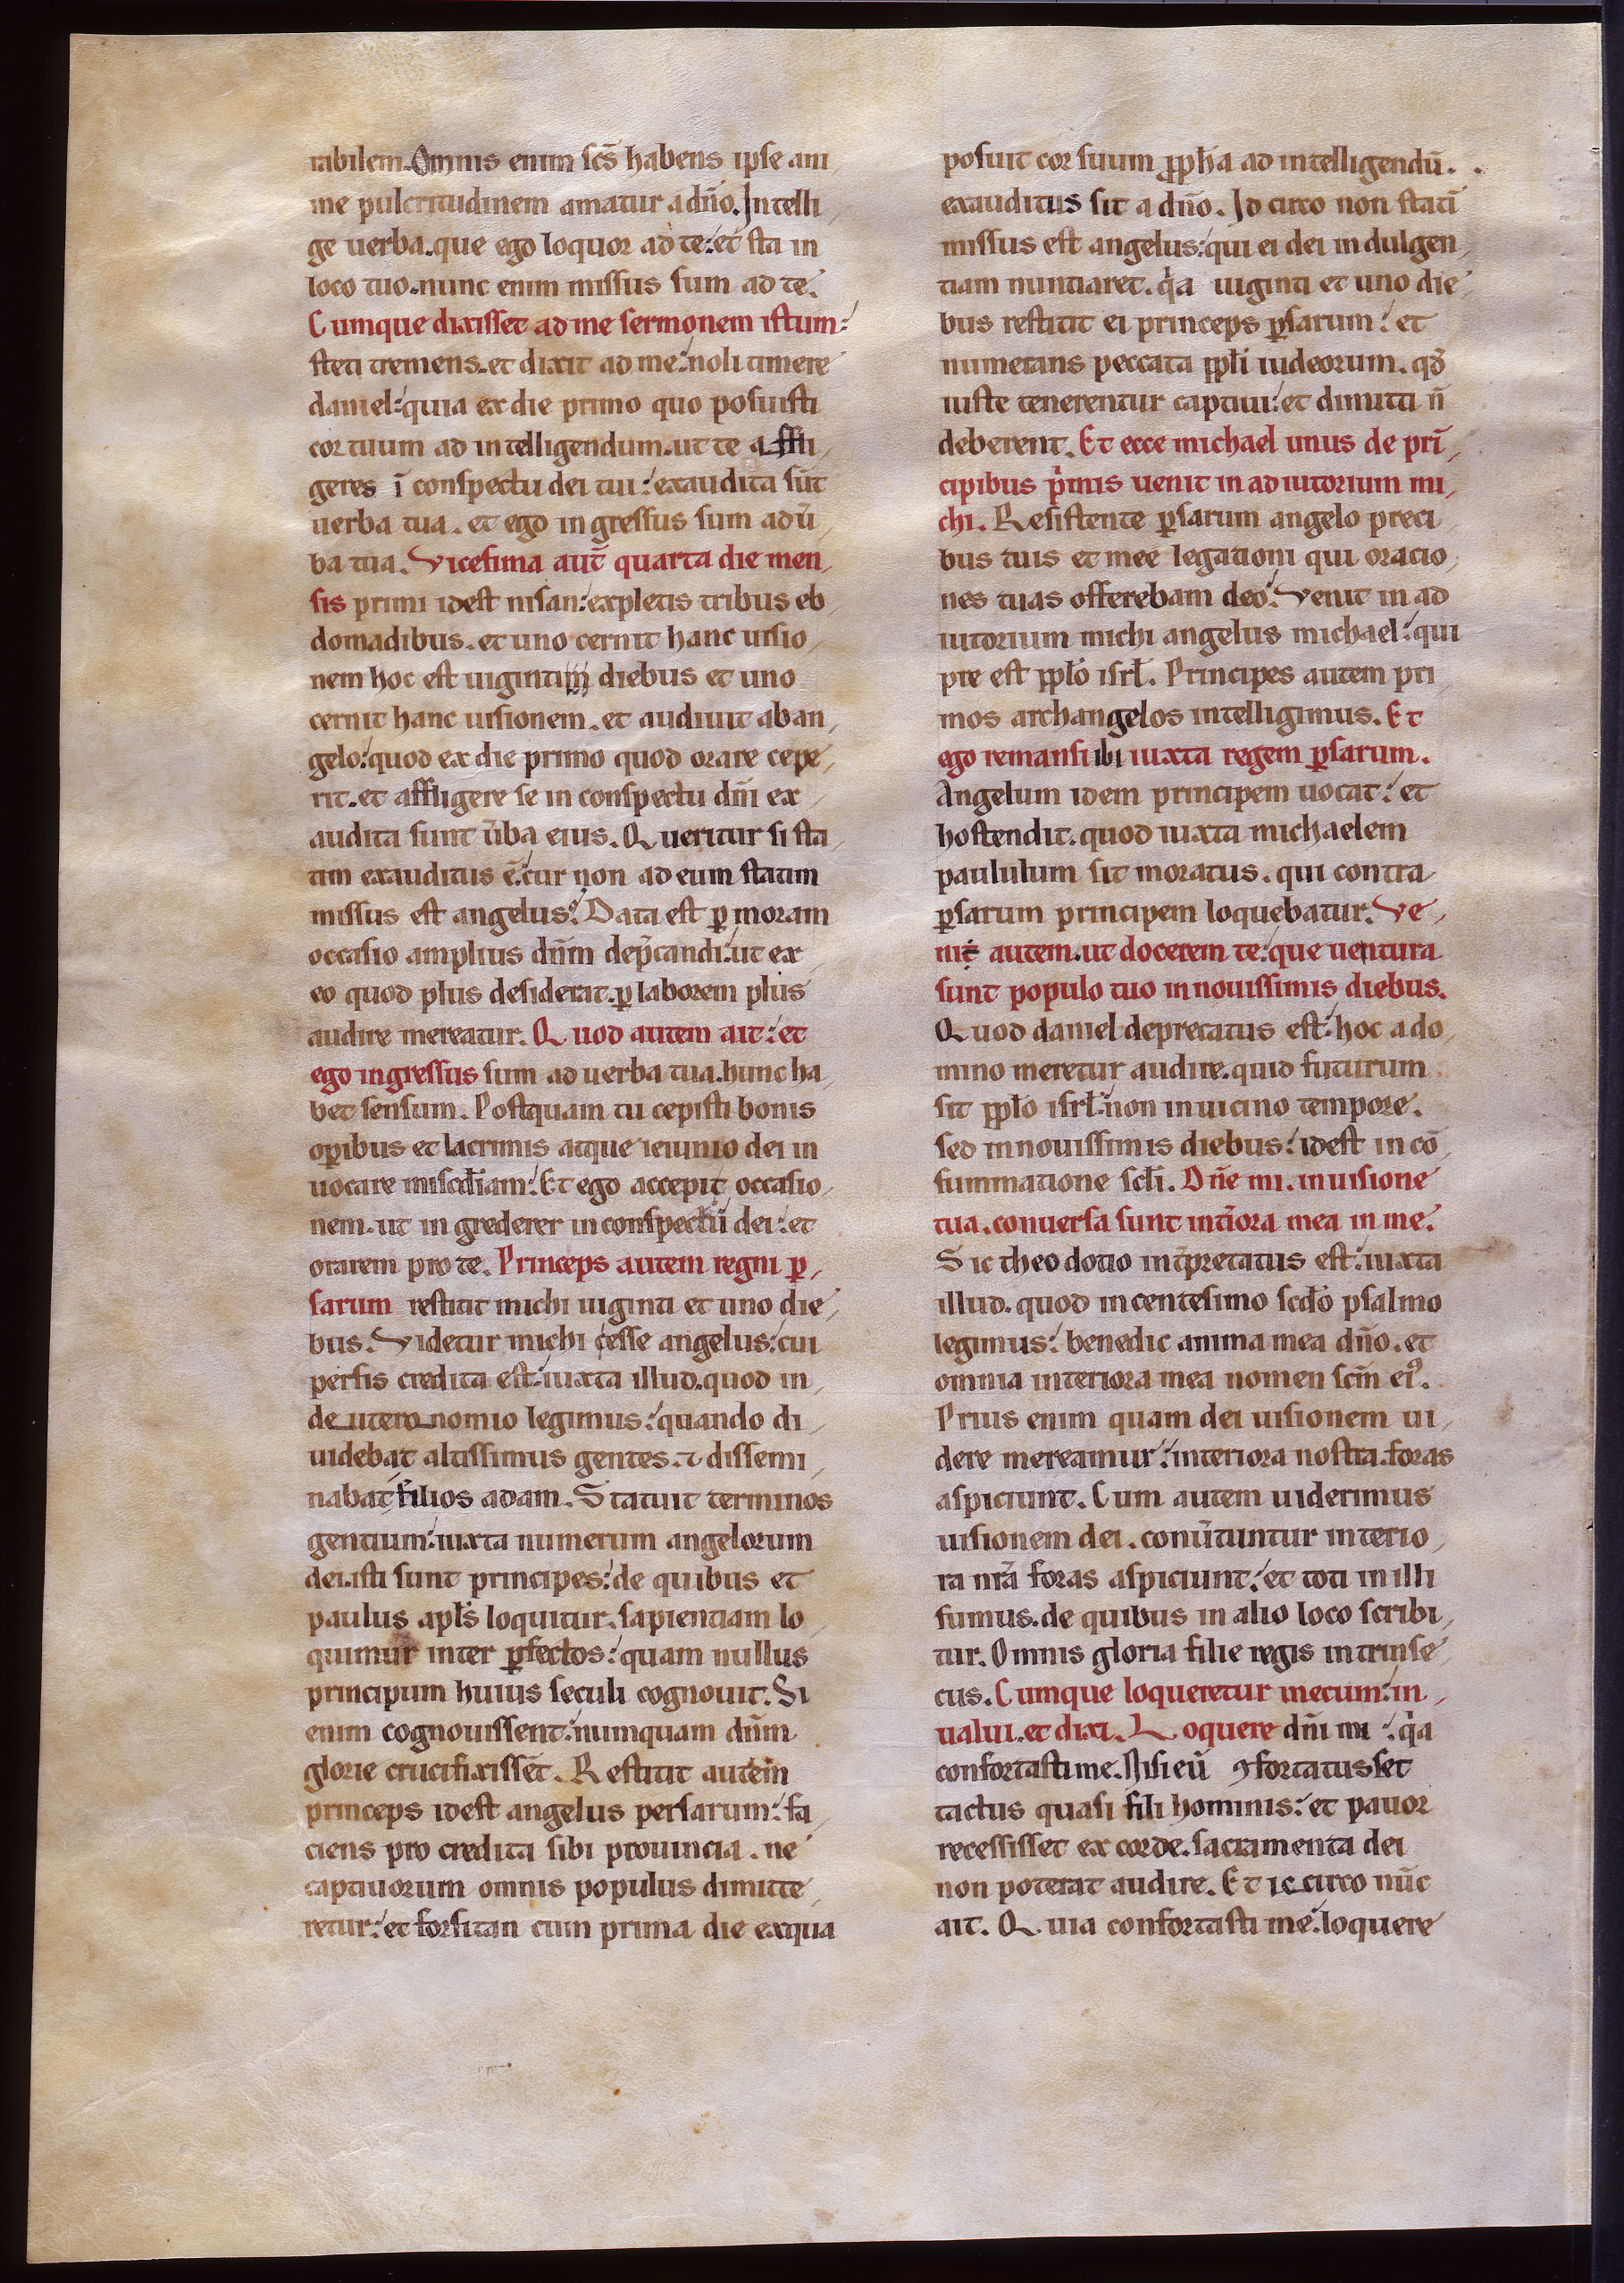 rabilem. Omnis enim scs̄ habens ipse ani
me pulcritudinem amatur a dn̄o. Intelli
ge uerba. que ego loquor ad te: et sta in
loco tuo. nunc enim missus sum ad te.
Cumque dixisset ad me sermonem istum:
steti tremens. et dixit ad me: noli timere
daniel: quia ex die primo quo posuisti
cor tuum ad intelligendum. ut te affli
geres ī conspectu dei tui: exaudita sūt
uerba tua. et ego ingressus sum ad ū
ba tua. Vicesima aut̄ quarta die men
sis primi idest nisan: expletis tribus eb
domadibus. et uno cernit hanc uisio
nem hoc est uiginti diebus et uno
cernit hanc uisionem. et audiuit ab an
gelo: quod ex die primo quod orare cepe
rit. et affligere se in conspectu dn̄i ex
audita sunt ūba eius. Queritur si sta
tim exauditus ē: cur non ad eum statim
missus est angelus. Data est ꝑ moram
occasio amplius dn̄m dep̄candi: ut ex
eo quod plus desiderat. ꝑ laborem plus
audire mereatur. Quod autem ait: et
ego ingressus sum ad uerba tua. hunc ha
bet sensum. Postquam tu cepisti bonis
oꝑibus et lacrimis atque ieiunio dei in
uocare misc̄diam: Et ego accepit occasio
nem. ut in grederer in conspectū dei: et
orarem pro te. Princeps autem regni ꝑ
sarum restitit michi uiginti et uno die
bus. Videtur michi cesse angelus: cui
persis credita est: iuxta illud. quod in
deuteronomio legimus: quando di
uidebat altissimus gentes. ⁊ dissemi
nabat filios adam. Statuit terminos
gentium: iuxta numerum angelorum
dei. isti sunt principes: de quibus et
paulus apl̄s loquitur. sapientiam lo
quimur inter ꝑfectos: quam nullus
principum huius seculi cognouit. Si
enim cognouissent: numquam dn̄m
glorie crucifixissēt. Restitit autem
princeps idest angelus persarum: fa
ciens pro credita sibi prouincia. ne
captiuorum omnis populus dimitte
retur: et forsitan cum prima die exqua
posuit cor suum ꝓph̄a ad intelligendū.
exauditus sit a dn̄o. Id circo non statī
missus est angelus: qui ei dei in dulgen
tiam nuntiaret. qͥa uiginti et uno die
bus restitit ei princeps ꝑsarum: et
numerans peccata ppl̄i iudeorum. qd̄
iuste tenerentur captiui: et dimitti n̄
deberent. Et ecce michael unus de prī
cipibus pͥmis uenit in ad iutorium mi
chi. Resistente ꝑsarum angelo preci
bus tuis et mee legationi qui oracio
nes tuas offerebam deo. Venit in ad
iutorium michi angelus michael: qui
pre est ppl̄o isrl̄. Principes autem pri
mos archangelos intelligimus. Et
ego remansi ibi iuxta regem ꝑsarum.
Angelum idem principem uocat: et
hostendit. quod iuxta michaelem
paululum sit moratus. qui contra
ꝑsarum principem loquebatur. Ve
nit autem. ut docerem te: que uentura
sunt populo tuo in nouissimis diebus.
Quod daniel deprecatus est: hoc a do
mino meretur audire. quid futurum
sit ppl̄o isrl̄: non in uicino tempore.
sed in nouissimis diebus: idest in cō
summatione scl̄i. Dn̄e mi. in uisione
tua. conuersa sunt int̄iora mea in me.
Sic theo dotio int̄pretatus est: iuxta
illud. quod in centesimo scd̄o psalmo
legimus: benedic anima mea dn̄o. et
omnia interiora mea nomen scm̄ eiꝰ.
Prius enim quam dei uisionem ui
dere mereamur: interiora nostra. foras
aspiciunt. Cum autem uiderimus
uisionem dei. conūtuntur interio
ra nr̄a foras aspiciunt: et toti in illi
sumus. de quibus in alio loco scribi
tur. Omnis gloria filie regis intrinse
cus. Cumque loqueretur mecum: in
ualui. et dixi. Loquere dn̄i mi: qͥa
confortasti me. Nisi eū ꝯfortatus set
tactus quasi fili hominis: et pauor
recessisset ex corde. sacramenta dei
non poterat audire. Et ic circo nūc
ait. Quia confortasti me: loquere